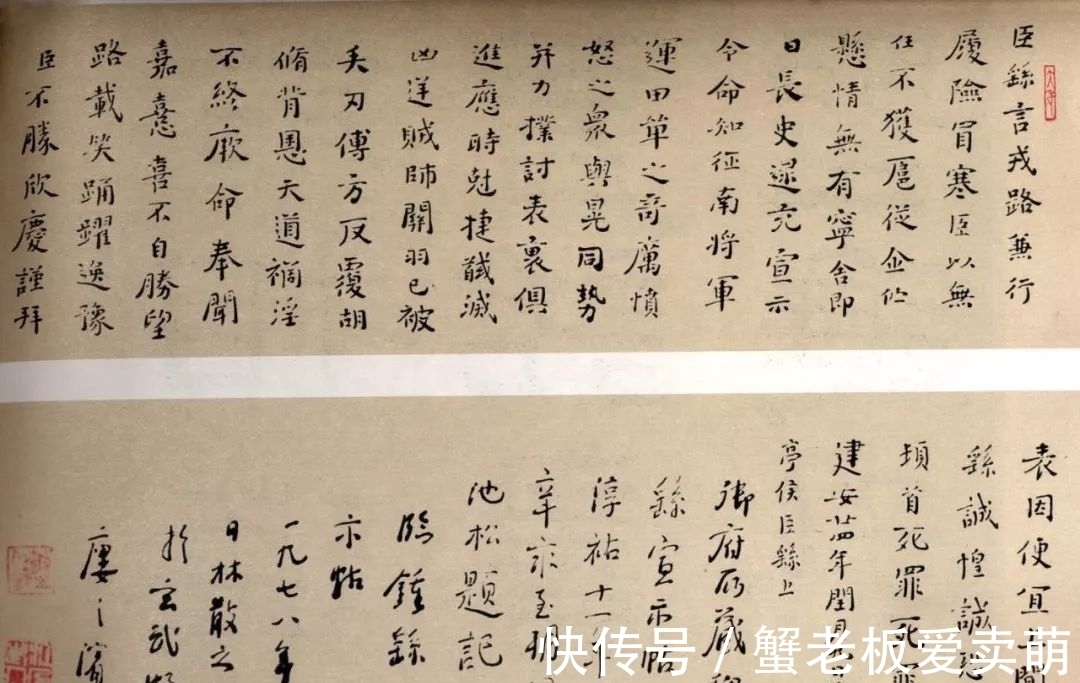 臣繇言戎路兼行
履險冒寒臣以無
任不獲扈從企佇
懸情無有寧舍即
日長史逯充宣示
令命知征南將軍
運田單之奇厲憤
怒之眾與晃同勢
并力撲討表裏俱
進應時尅捷馘滅
凶逆賊帥關羽已被
矢刃傅方反覆胡
脩背恩天道禍淫
不終厥命奉聞
嘉憙喜不自勝望
路載笑踊躍逸豫
臣不勝欣慶謹拜
表因便宜上聞
繇誠惶誠恐
頓首死罪死罪
建安廿四年閏月
亭侯臣繇上
御府所藏
繇宣示帖
淳祐十一年
辛亥至
池松題記
臨鍾繇
示帖
一九七八年
日林散之
於玄武
快传号 / 蟹老板爱卖萌